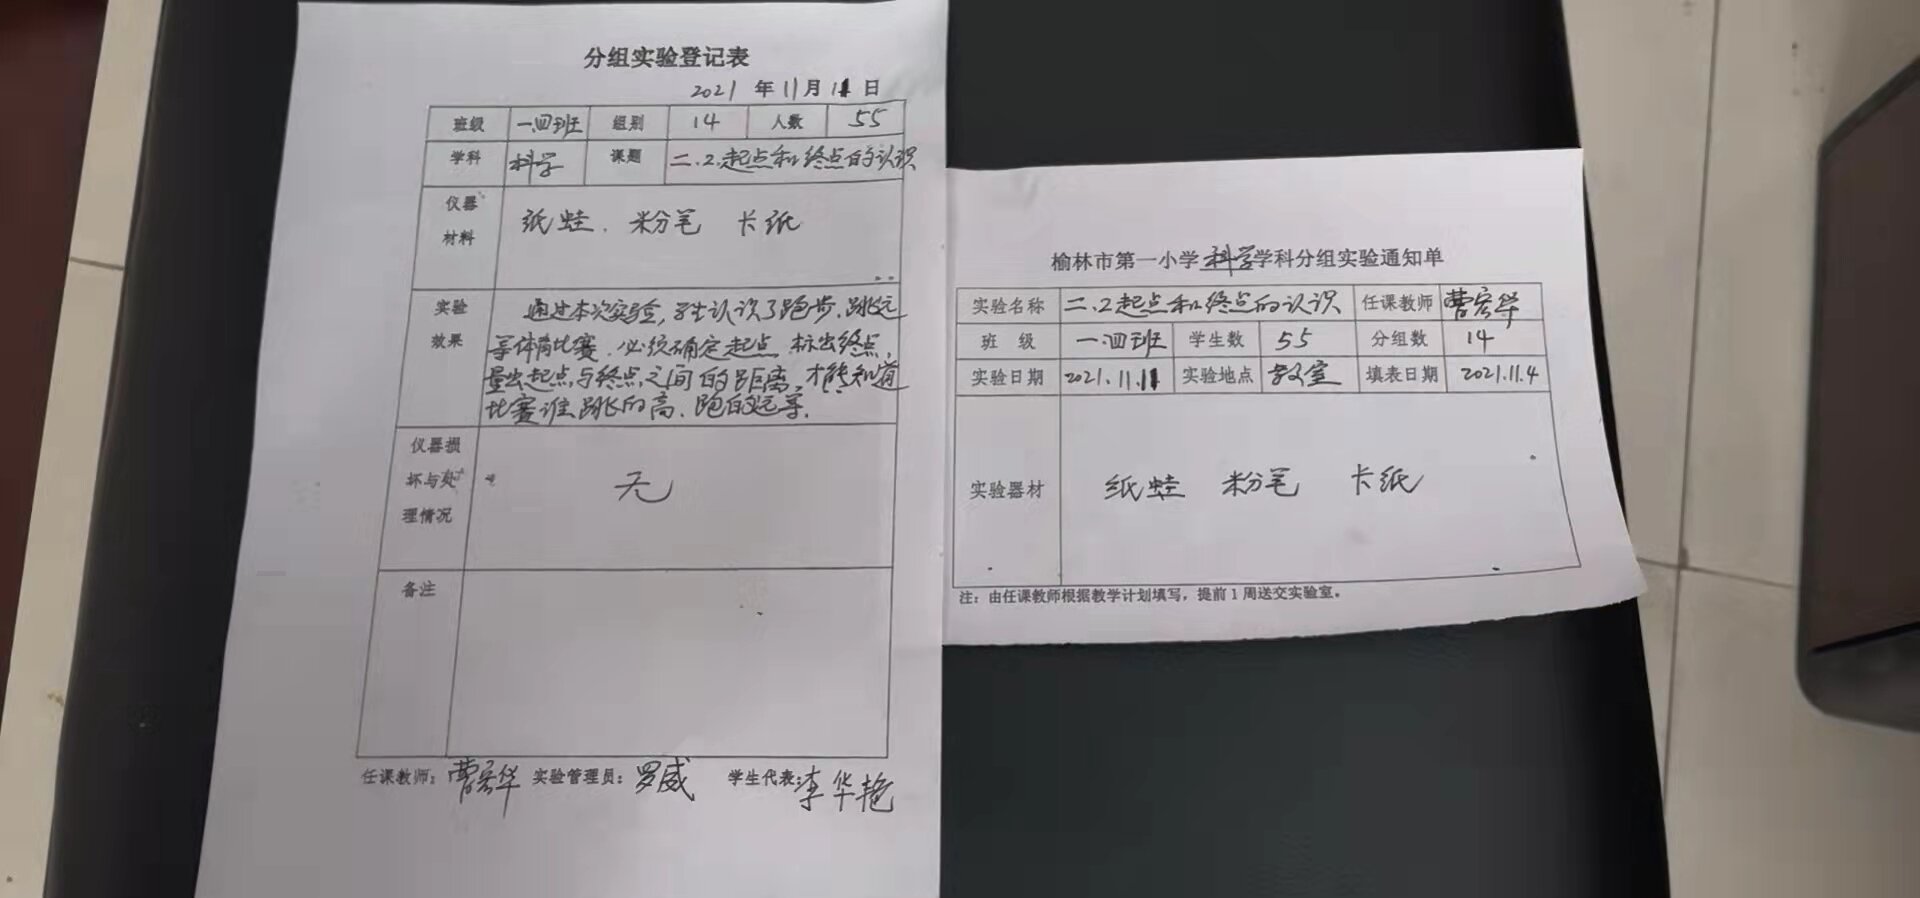 分组实验登记表
2021 年 11月 11 日
班级 一.四班 组别 14 人数 55
学科 科学 课题 二.2.起点和终点的认识
仪器材料 纸蛙. 粉笔 卡纸
实验效果 通过本次实验,学生认识了跑步.跳远
等体育比赛.必须确定起点.标出终点,
量出起点与终点之间的距离,才能知道
比赛谁跳的高.跑的远等.
仪器损坏与处理情况 无
备注
任课教师:曹宏华 实验管理员:罗威 学生代表:李华艳
榆林市第一小学科学学科分组实验通知单
实验名称 二.2起点和终点的认识 任课教师 曹宏华
班 级 一.四班 学生数 55 分组数 14
实验日期 2021.11.11 实验地点 教室 填表日期 2021.11.4
实验器材 纸蛙 粉笔 卡纸
注:由任课教师根据教学计划填写,提前1周送交实验室。